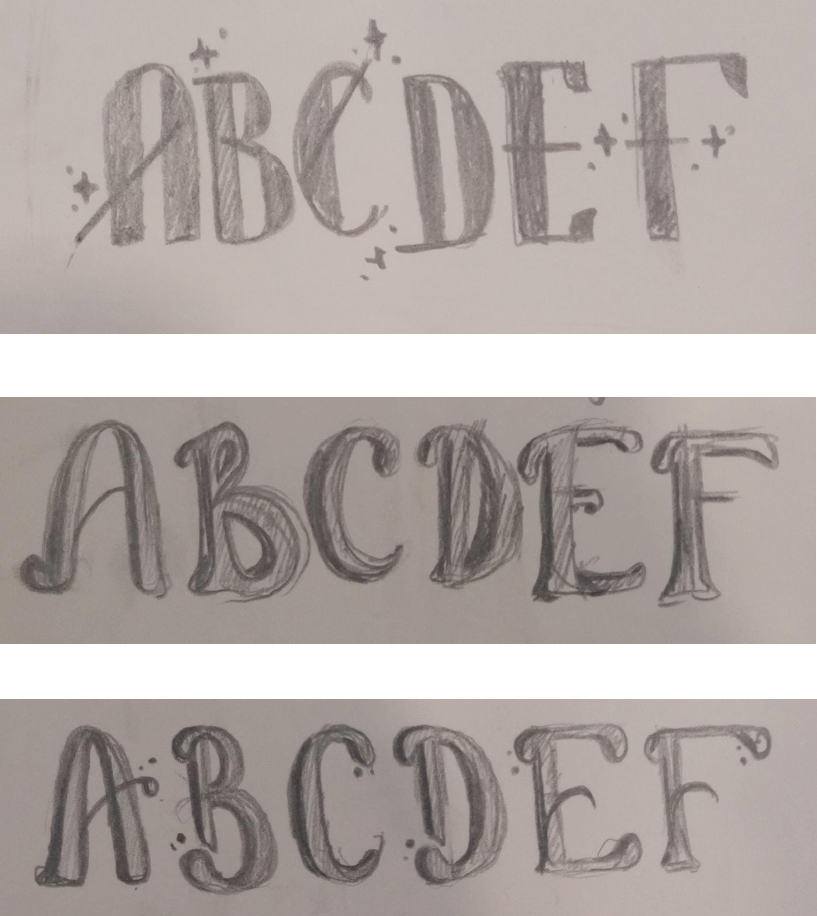 ABCDEF
ABCDEF
ABCDEF